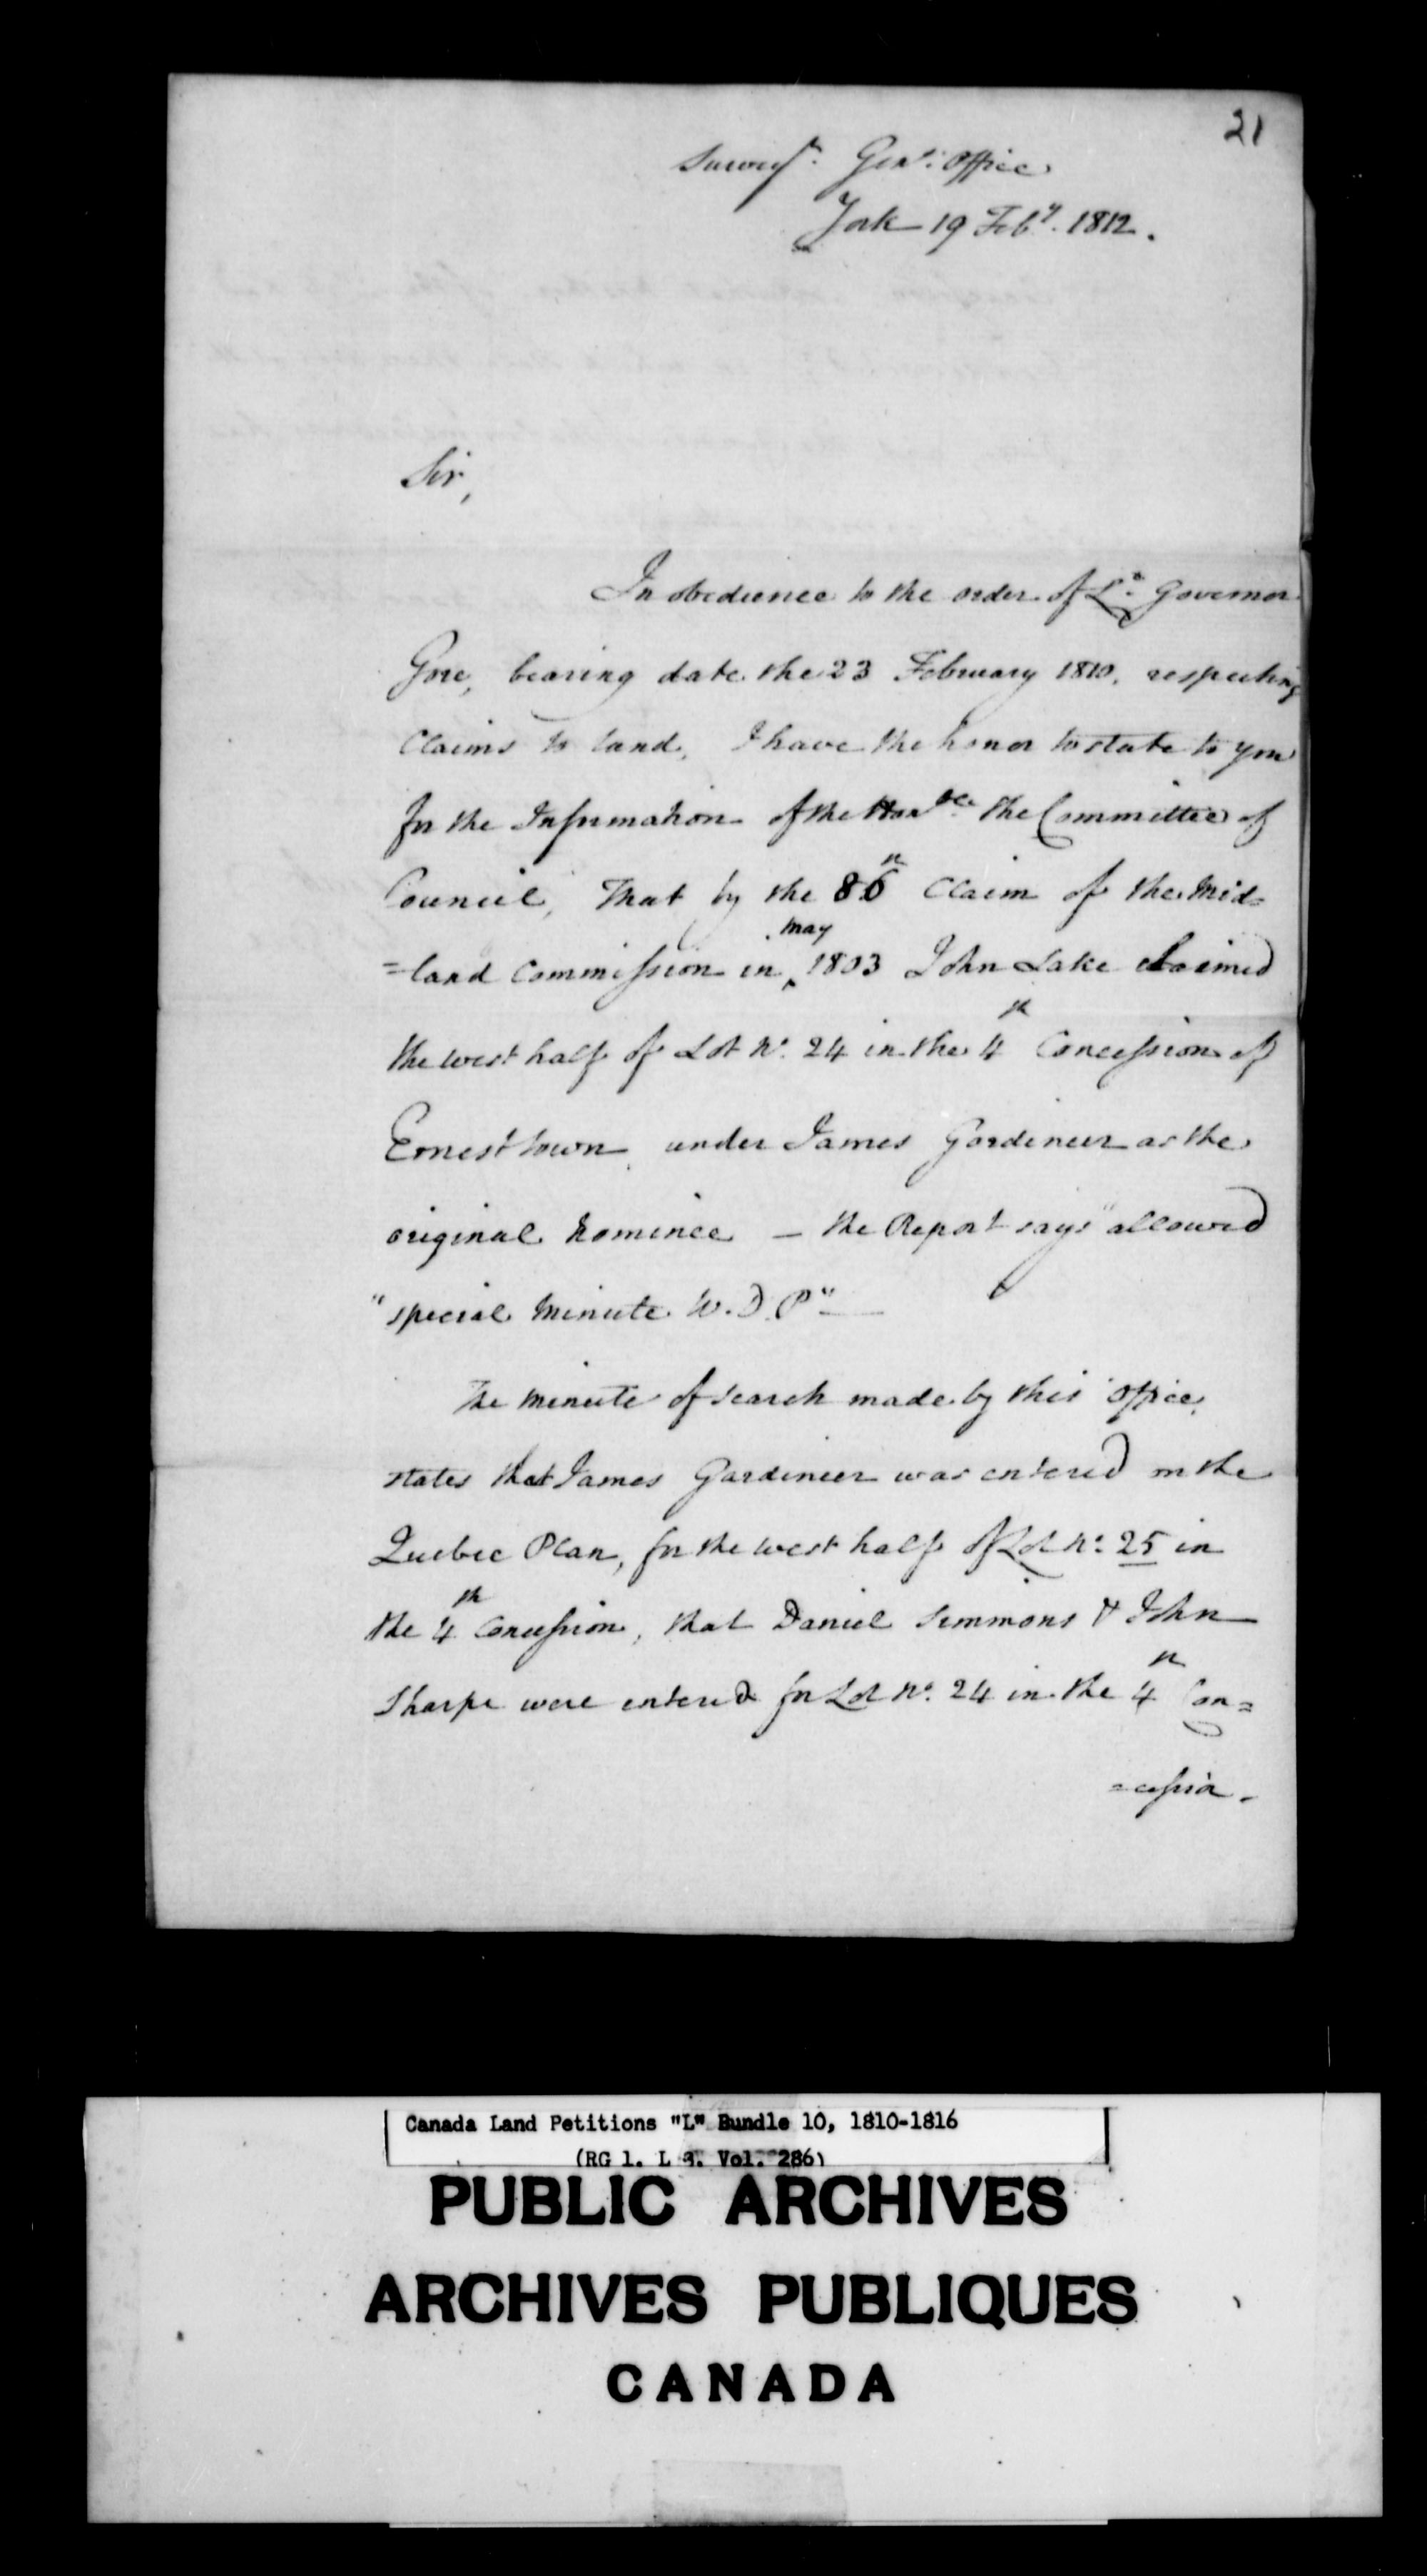 21
Survey.r Gen.l Office
York 19 Feb.y 1812.
Sir,
In obedience to the order of L.t Governor
Gore, bearing date the 23 February 1810, respecting
Claims to land, I have the honor to state to you
for the Information of the Hon.ble the Committee of
Council, That by the 86th Claim of the Mid=
may
=land Commission in ^ 1803 John Lake claimed
the west half of Lot No. 24 in the 4th Concession of
Ernest town under James Gardineer as the
original Nominee — the Report says "allowed
"special Minute W. D. P" —
The Minute of search made by this office,
states that James Gardineer was entered on the
Quebec Plan, for the west half of Lot No. 25 in
the 4th Concession, that Daniel Simmons & John
Sharpe were entered for Lot No. 24 in the 4th Con=
=cession.
Canada Land Petitions "L" Bundle 10, 1810-1816
(RG 1, L 3, Vol. 286)
PUBLIC ARCHIVES
ARCHIVES PUBLIQUES
CANADA